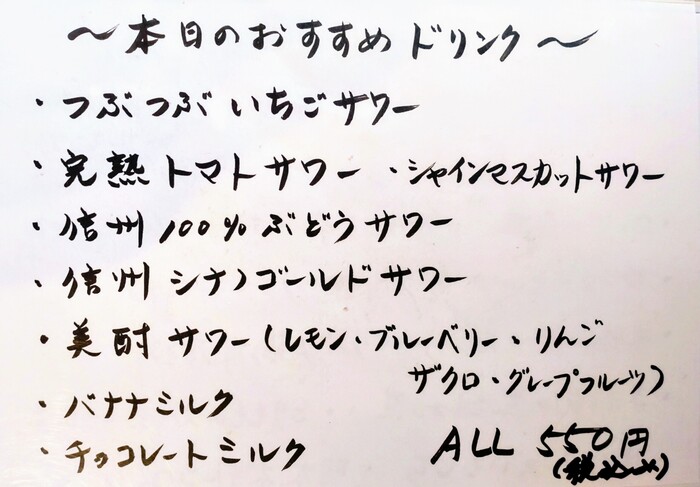 ～本日のおすすめドリンク～
・つぶつぶいちごサワー
・完熟トマトサワー ・シャインマスカットサワー
・信州100%ぶどうサワー
・信州シナノゴールドサワー
・美酎サワー(レモン・ブルーベリー・りんご
ザクロ・グレープフルーツ)
・バナナミルク
・チョコレートミルク
ALL 550円
(税込み)